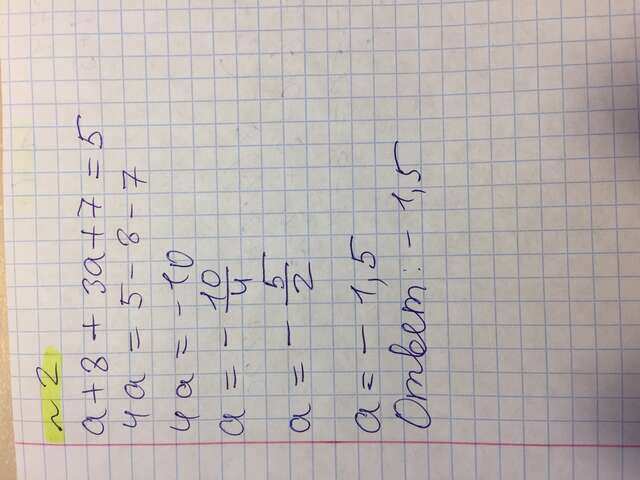 № 2
a + 8 + 3a + 7 = 5
4a = 5 - 8 - 7
4a = -10
a = - 10/4
a = - 5/2
a = - 1,5
Ответ: - 1,5